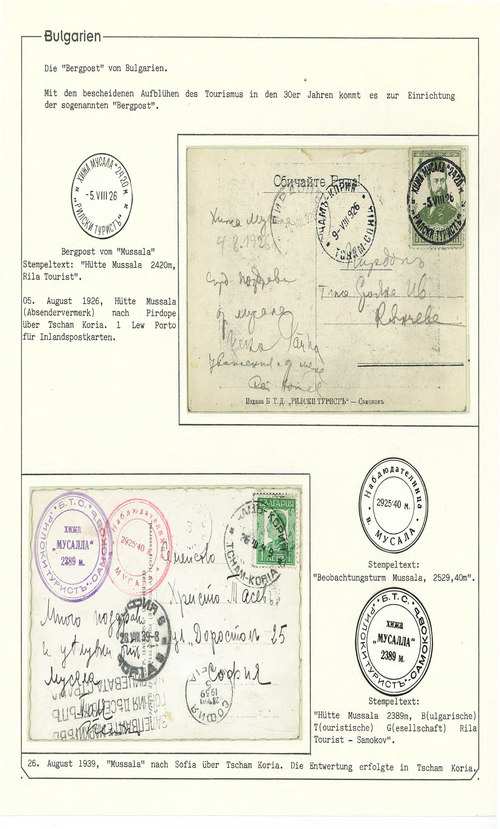 Bulgarien
Die "Bergpost" von Bulgarien.
Mit dem bescheidenen Aufblühen des Tourismus in den 30er Jahren kommt es zur Einrichtung
der sogenannten "Bergpost".
ХИЖА МУСАЛА 2420 м.
-5.VIII 26
"РИЛСКИ ТУРИСТЪ"
Bergpost vom "Mussala"
Stempeltext: "Hütte Mussala 2420m,
Rila Tourist".
05. August 1926, Hütte Mussala
(Absendervermerk) nach Pirdope
über Tscham Koria. 1 Lew Porto
für Inlandspostkarten.
Обичайте Рила!
ХИЖА МУСАЛА 2420 м.
-5.VIII 26
"РИЛСКИ ТУРИСТЪ"
ЧАМЪ-КОРИЯ
9-VIII 926
TCHAM-CORIA
Хижа Му
4.8.1926
Пирдопъ
от мусала
Издава Б Т. Д. „РИЛСКИ ТУРИСТЪ" — Самоковъ
Б.Т.С.
хижа
„МУСАЛЛА"
2389 м.
РИЛСКИ ТУРИСТЪ - САМОКОВЪ
Наблюдателница
2925'40 м.
МУСАЛА
БЪЛГАРИЯ
TCHAM-KORIA
Много поздрави
Мусала
Христо Масев
ул. „Доростол 25
София
СОФИЯ
28.VIII.39-8
СОФИЯ
1939
Наблюдателница
2925'40 м.
в. МУСАЛА
Stempeltext:
"Beobachtungsturm Mussala, 2529,40m".
Б.Т.С.
хижа
„МУСАЛЛА"
2389 м.
РИЛСКИ ТУРИСТЪ - САМОКОВЪ
Stempeltext:
"Hütte Mussala 2389m, B(ulgarische)
T(ouristische) G(esellschaft) Rila
Tourist - Samokov".
26. August 1939, "Mussala" nach Sofia über Tscham Koria. Die Entwertung erfolgte in Tscham Koria.